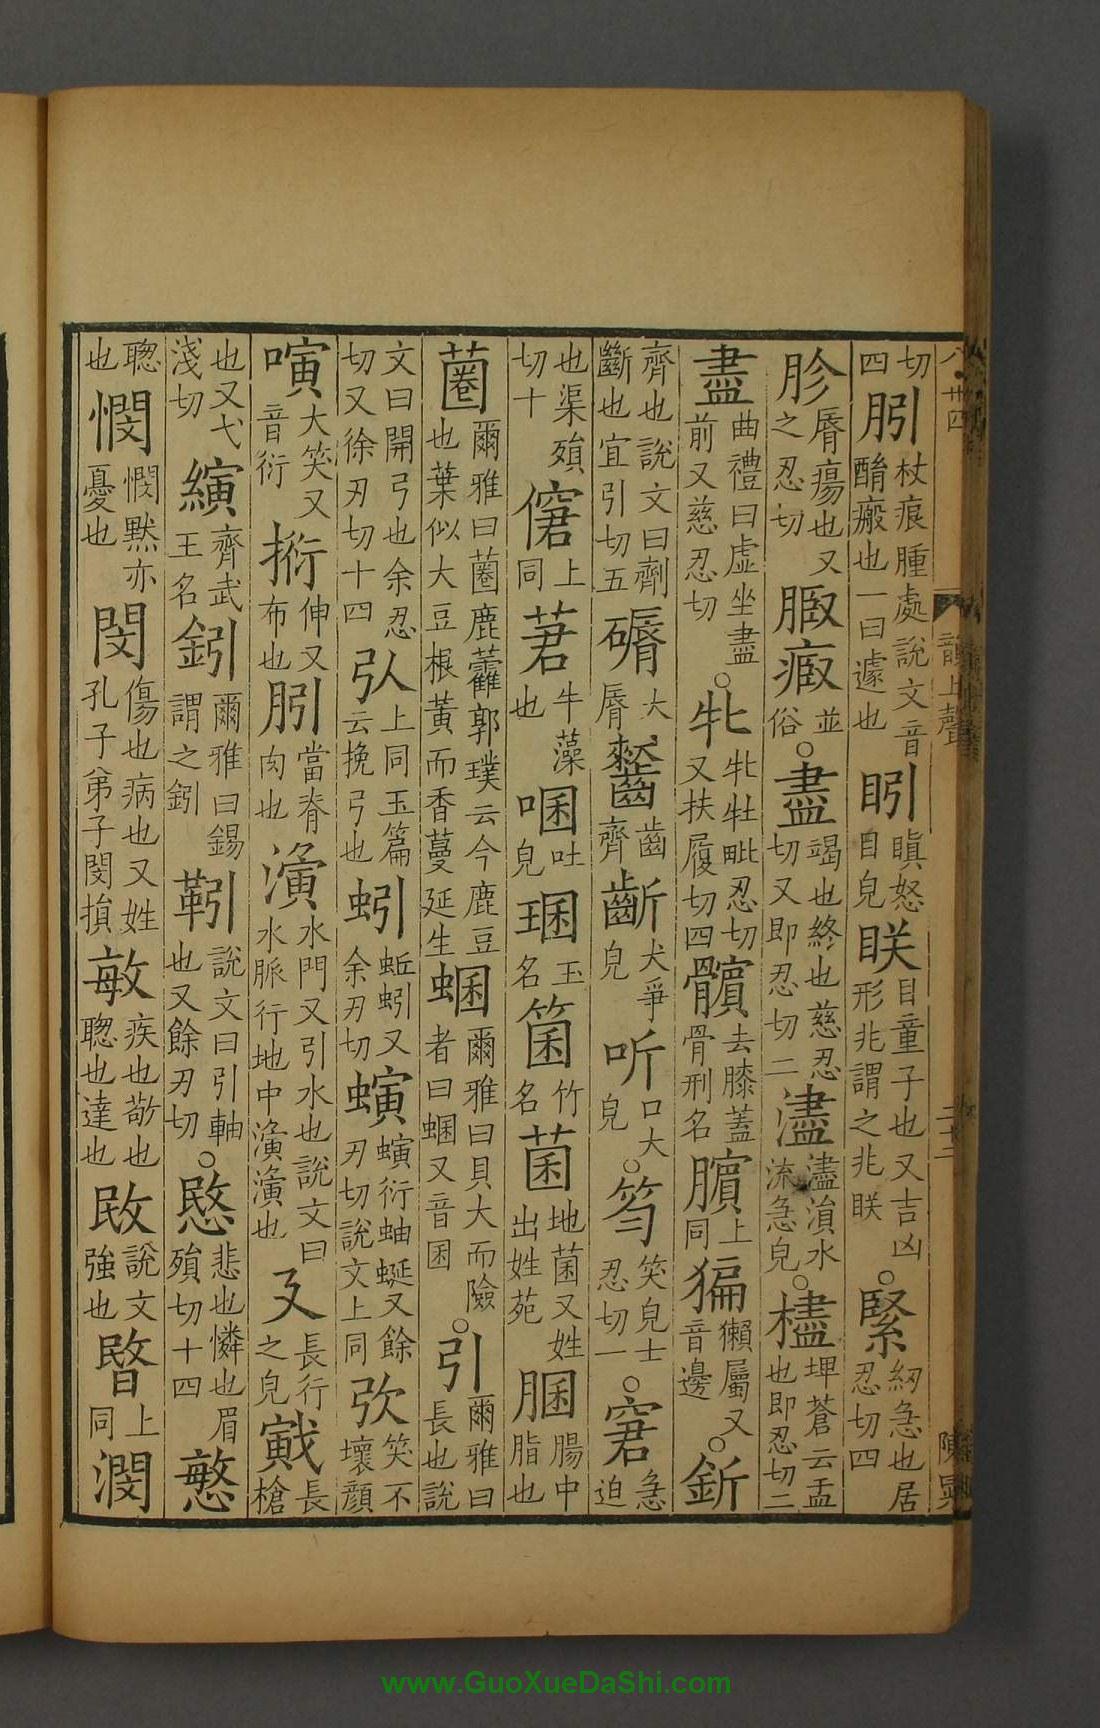 切四𦙍杖痕腫處說文音酳瘢也一曰遽也䀕瞋怒目皃眹目童子也又吉凶形兆謂之兆眹○緊紉急也居忍切四
胗脣瘍也又之忍切腵瘕並俗○盡竭也終也慈忍切又即忍切二濜濜湏水流急皃○㯸埤蒼云盂也即忍切二
盡曲禮曰虛坐盡前又慈忍切○牝牝牡毗忍切又扶履切四髕去膝蓋骨刑名臏上同猵獺屬又音邊○釿
齊也說文曰劑斷也宜引切五磭大脣齽齒齊齗犬爭皃听口大皃○笉笑皃士忍切一○窘急迫
也渠殞切十僒上同莙牛藻也㖥吐皃珚玉名箘竹名菌地菌又姓出姓苑䐃腸中脂也
䕑爾雅曰䕑鹿藿郭璞云今鹿豆也葉似大豆根黃而香蔓延生蜠爾雅曰貝大而險者曰蜠又音囷○引爾雅曰長也說
文曰開弓也余忍切又徐刃切十四㧈上同玉篇云挽弓也蚓蚯蚓又余刃切螾螾衍蚰蜒又餘刃切說文上同弞笑不壞顏
㖶大笑又音衍𢫬伸又布也𦙍當脊肉也濥水門又引水也說文曰水脈行地中濥濥也廴長行之皃戭長槍
也又弋淺切縯齊武王名鈏爾雅曰錫謂之鈏靷說文曰引軸也又餘刃切○愍悲也憐也眉殞切十四慜
聦也憫憫默亦憂也閔傷也病也又姓孔子弟子閔損敏疾也敬也聦也達也敃說文強也暋上同潣
韻上聲
二十三
陳晃
www.GuoXueDaShi.com